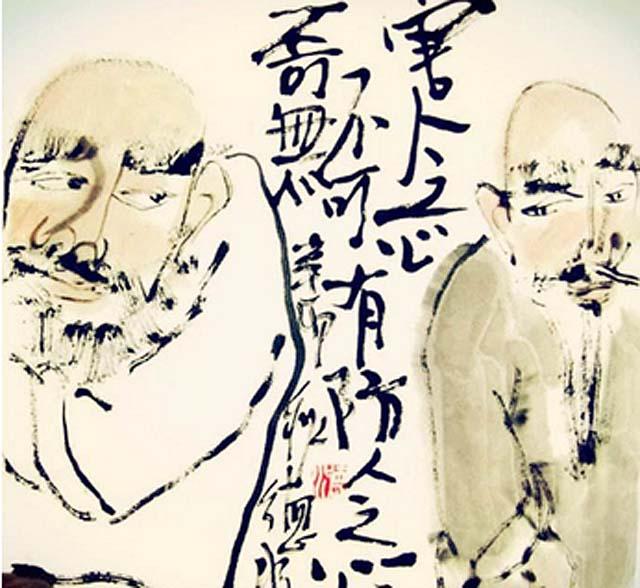 害人之心
不可有防人之心
不可無